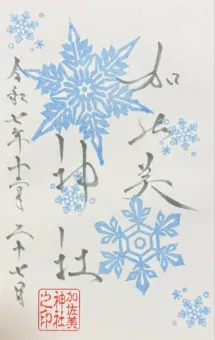 加佐美
神社
令和七年十二月二十七日
加佐美
神社
之印